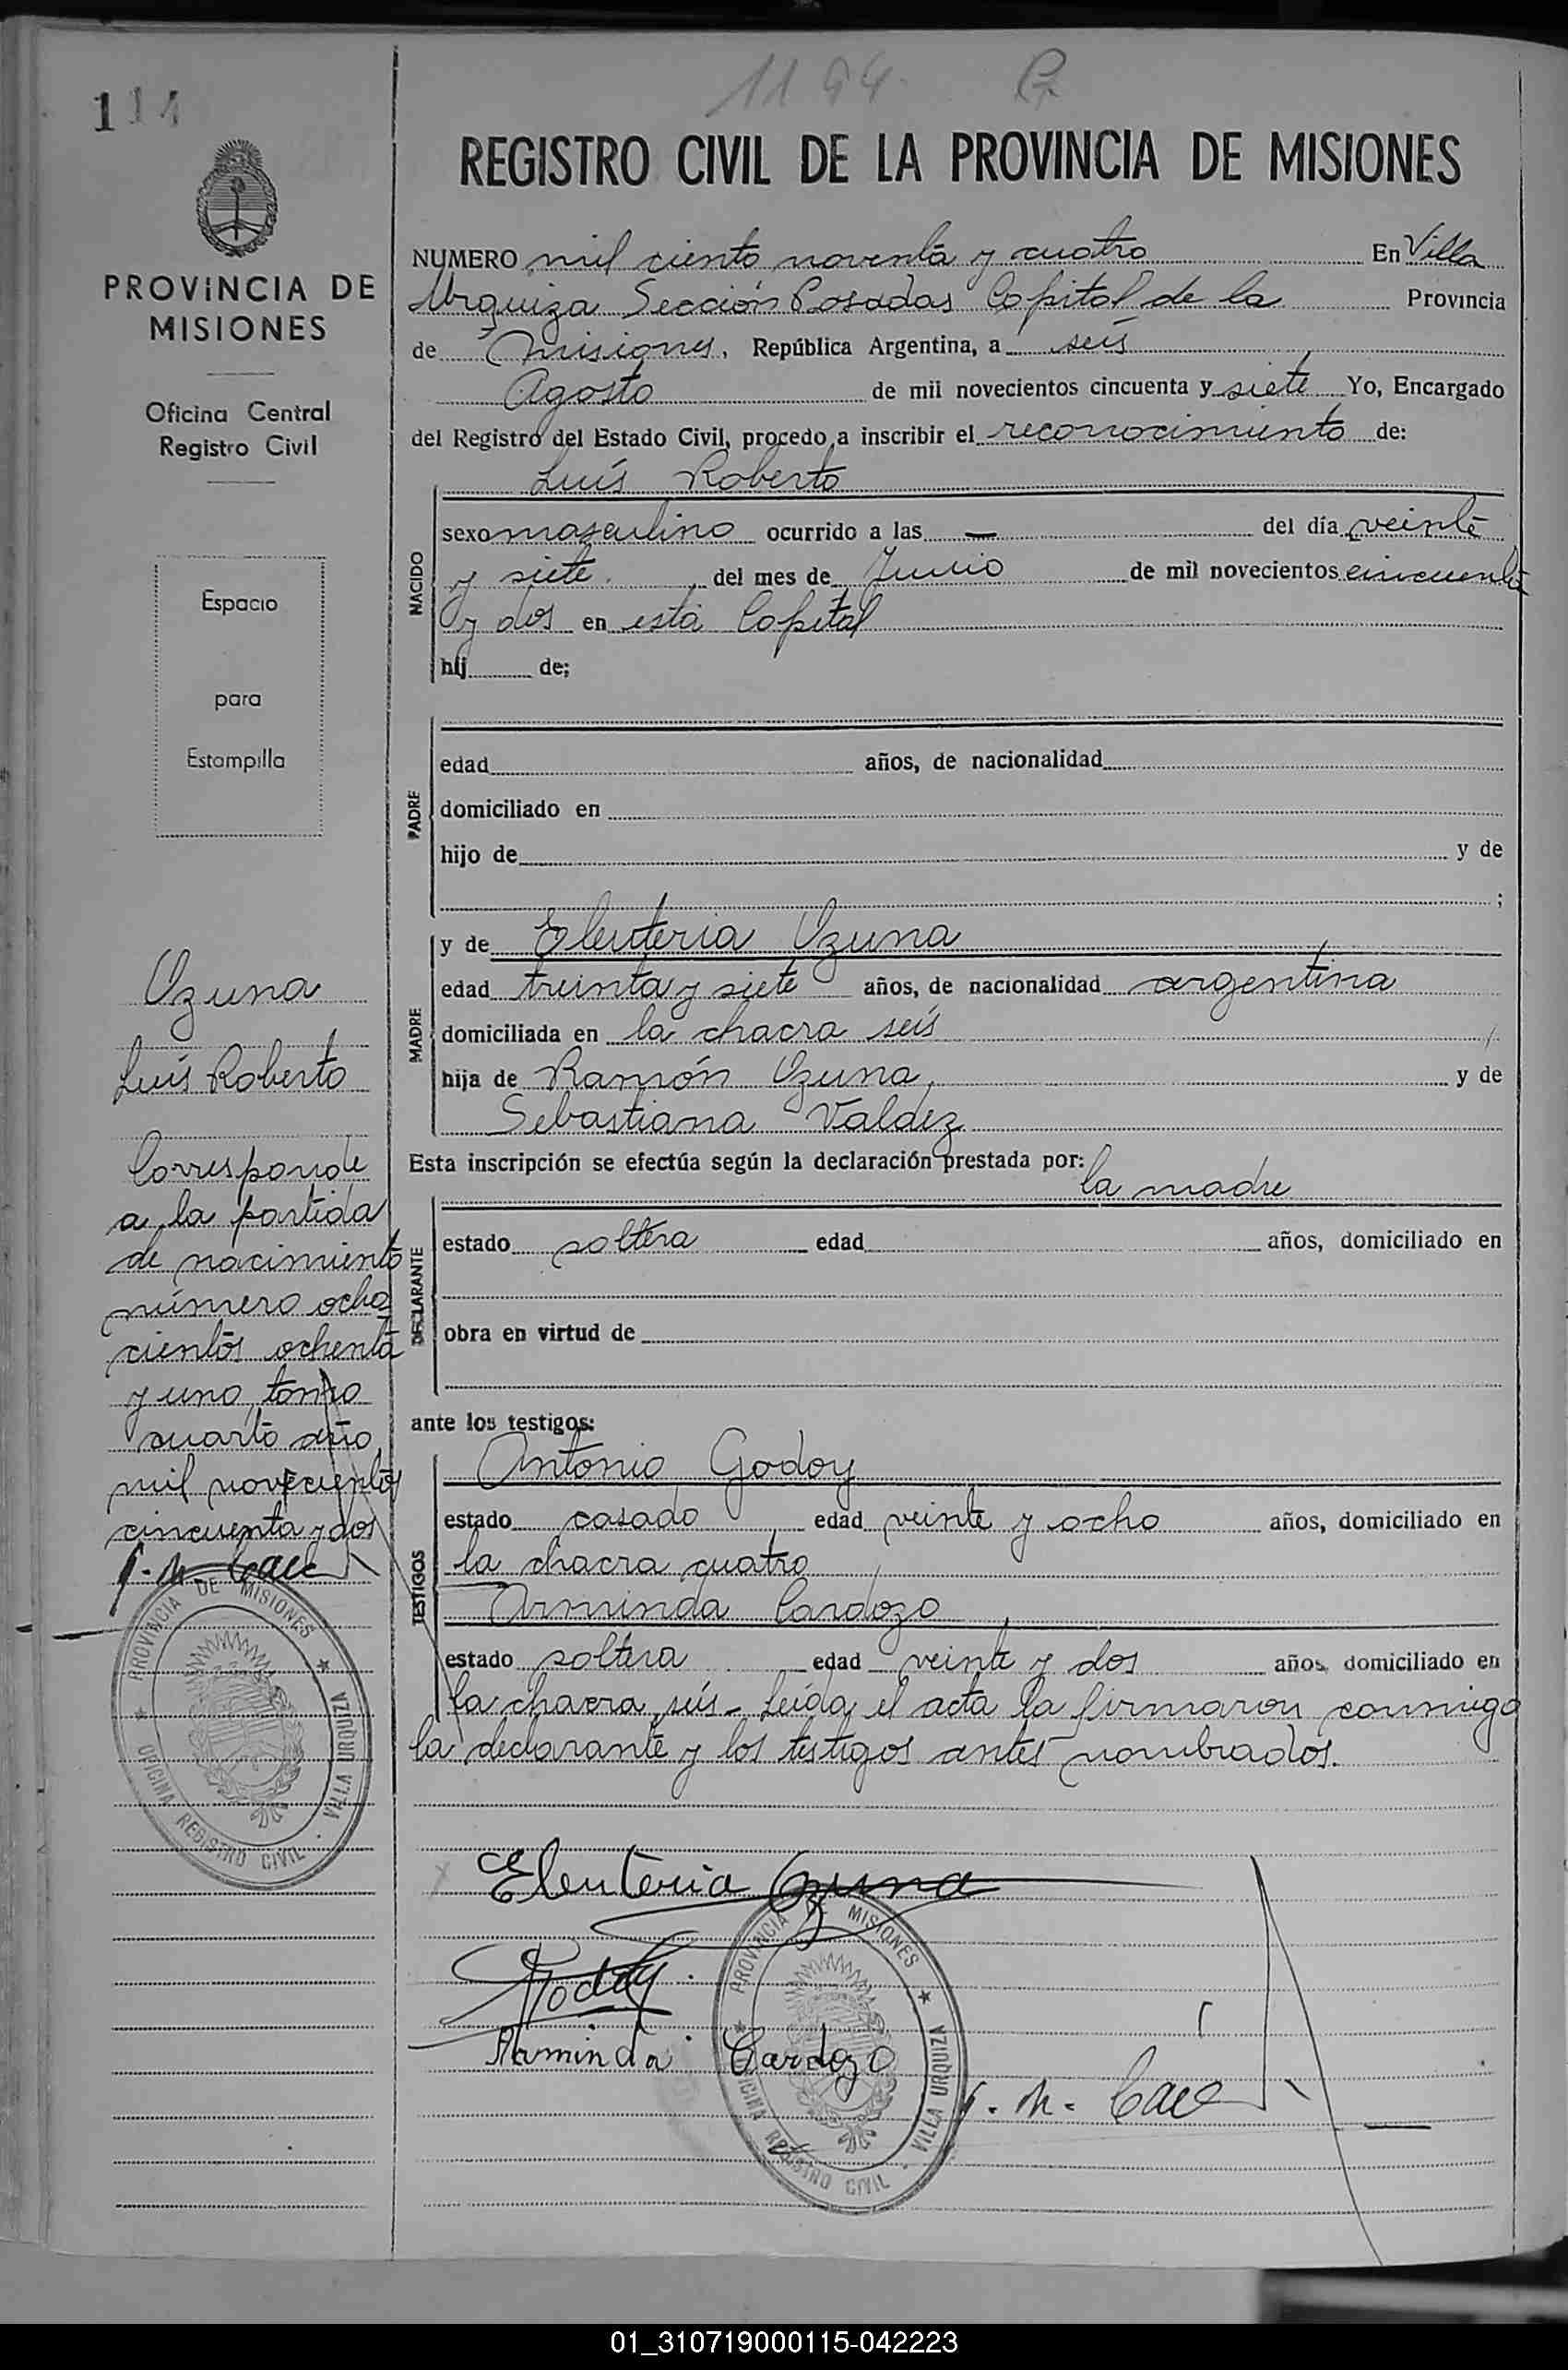 1194
114
REGISTRO CIVIL DE LA PROVINCIA DE MISIONES
PROVINCIA DE
MISIONES
Oficina Central
Registro Civil
Espacio
para
Estampilla
Ozuna
Luís Roberto
Corresponde
a la partida
de nacimiento
número ocho
cientos ochenta
y uno, tomo
cuarto año
mil novecientos
cincuenta y dos
PROVINCIA DE MISIONES
OFICINA REGISTRO CIVIL
VILLA URQUIZA
NUMERO mil ciento noventa y cuatro En Villa
Urquiza Sección Posadas Capital de la Provincia
de Misiones, República Argentina, a seis
Agosto de mil novecientos cincuenta y siete Yo, Encargado
del Registro del Estado Civil, procedo a inscribir el reconocimiento de:
Luís Roberto
NACIDO
sexo masculino ocurrido a las — del día veinte
y siete del mes de Junio de mil novecientos cincuenta
y dos en esta Capital
hij de;
PADRE
edad años, de nacionalidad
domiciliado en
hijo de y de
;
MADRE
y de Eleuteria Ozuna
edad treinta y siete años, de nacionalidad argentina
domiciliada en la chacra seis
hija de Ramón Ozuna, y de
Sebastiana Valdez
Esta inscripción se efectúa según la declaración prestada por:
la madre
DECLARANTE
estado soltera edad años, domiciliado en
obra en virtud de
ante los testigos:
TESTIGOS
Antonio Godoy
estado casado edad veinte y ocho años, domiciliado en
la chacra cuatro
Arminda Cardozo
estado soltera edad veinte y dos años, domiciliado en
la chacra seis - Leída el acta la firmaron conmigo
la declarante y los testigos antes nombrados.
Eleuteria Ozuna
Godoy
Arminda Cardozo
PROVINCIA DE MISIONES
OFICINA REGISTRO CIVIL
VILLA URQUIZA
01_310719000115-042223